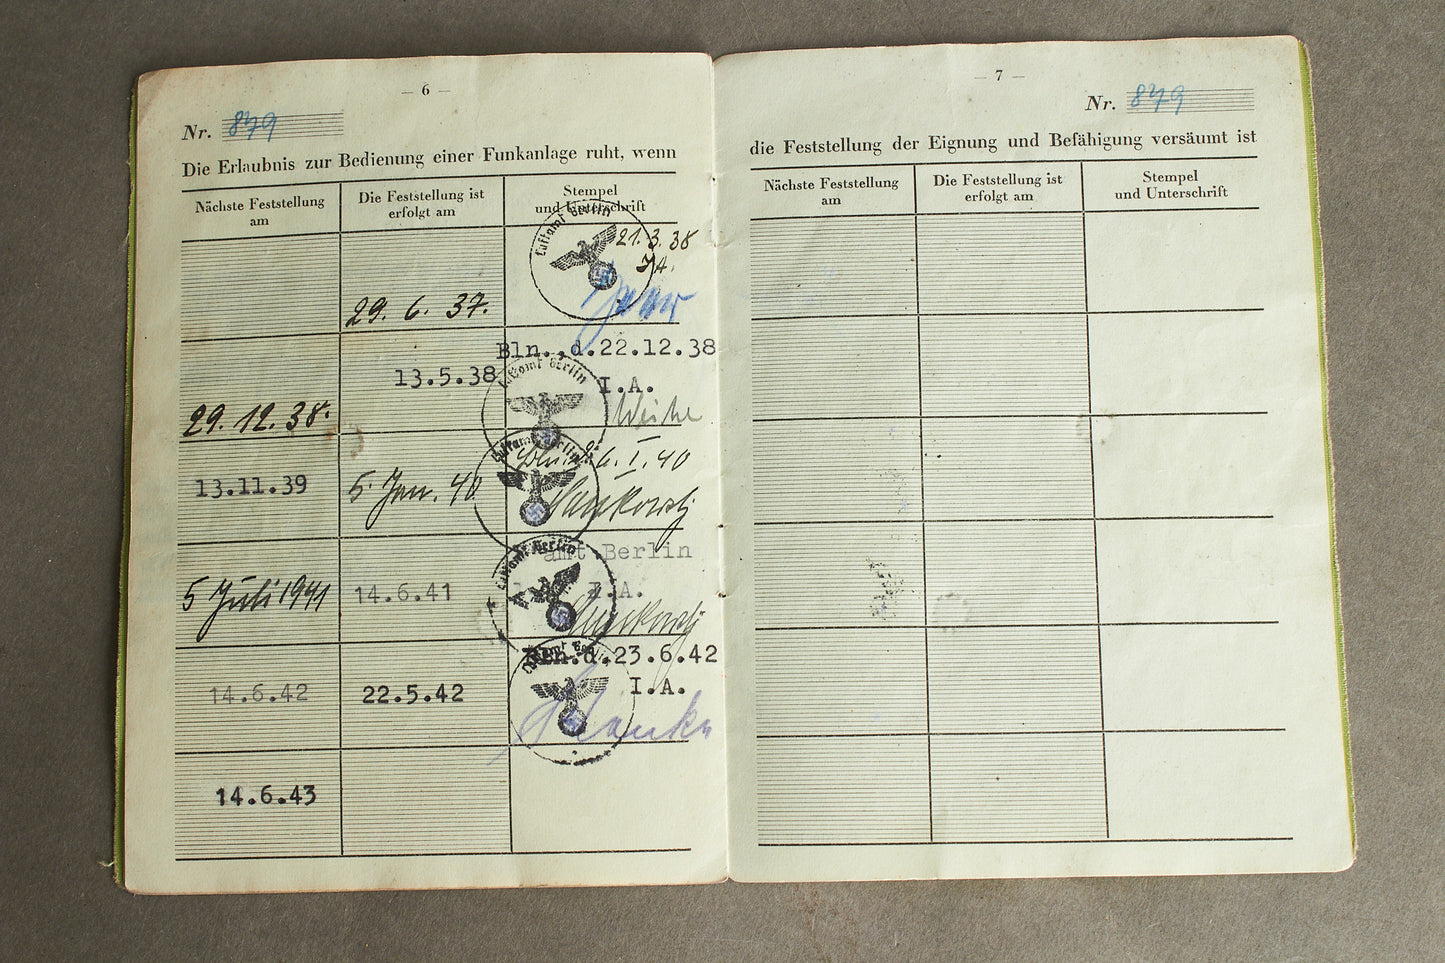 — 6 —
Nr. 879
Die Erlaubnis zur Bedienung einer Funkanlage ruht, wenn
Nächste Feststellung am
Die Feststellung ist erfolgt am
Stempel und Unterschrift
Luftamt Berlin
21. 3. 38
I.A.
29. 6. 37.
Bln., d. 22.12.38
13.5.38
Luftamt Berlin
I.A.
29. 12. 38.
Luftamt Berlin
6. I. 40
13.11.39
5. Jan. 40
amt Berlin
Luftamt Berlin
I.A.
5 Juli 1941
14.6.41
Bln.d.23.6.42
14.6.42
22.5.42
I.A.
14.6.43
— 7 —
Nr. 879
die Feststellung der Eignung und Befähigung versäumt ist
Nächste Feststellung am
Die Feststellung ist erfolgt am
Stempel und Unterschrift